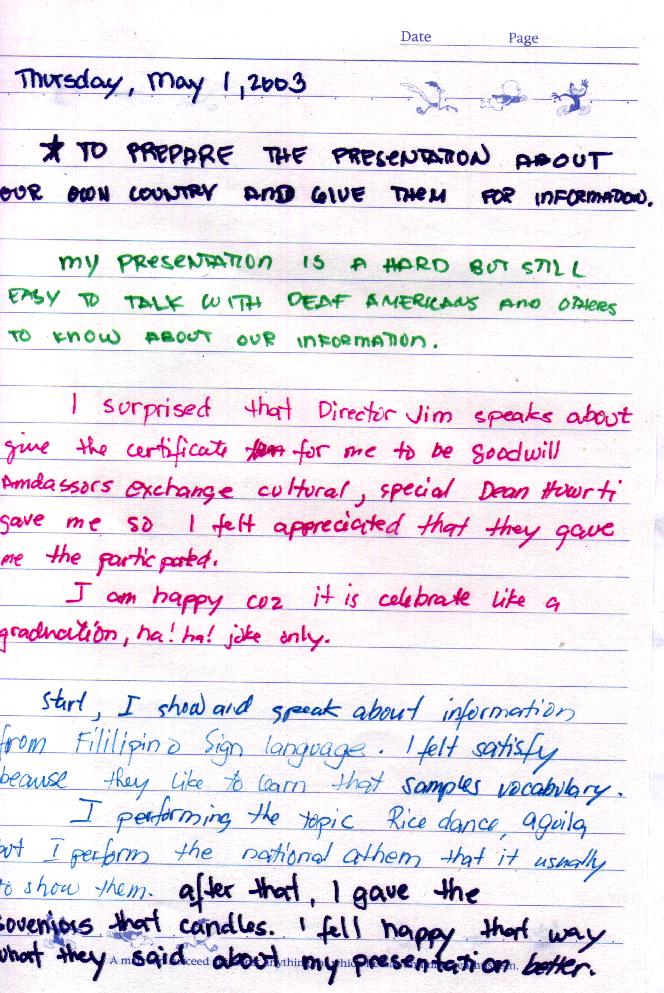 Date Page
Thursday, May 1, 2003
★ TO PREPARE THE PRESENTATION ABOUT
OUR OWN COUNTRY AND GIVE THEM FOR INFORMATION.
MY PRESENTATION IS A HARD BUT STILL
EASY TO TALK WITH DEAF AMERICANS AND OTHERS
TO KNOW ABOUT OUR INFORMATION.
I surprised that Director Jim speaks about
give the certificate for me to be Goodwill
Amdassors exchange cultural, special Dean
gave me so I felt appreciated that they gave
me the participated.
I am happy coz it is celebrate like a
graduation, ha! ha! joke only.
Start, I show and speak about information
from Fililipino Sign language. I felt satisfy
because they like to learn that samples vocabulary.
I performing the topic Rice dance, aguila
but I perform the national athem that it usually
to show them. after that, I gave the
soveniors that candles. I fell happy that way
what they said about my presentation better.